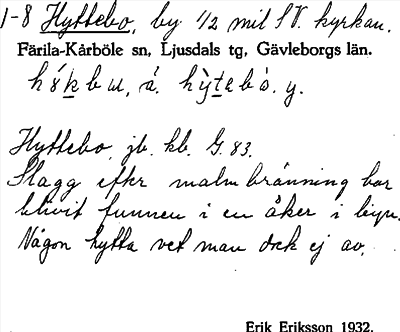 1-8 Hyttebo, by 1/2 mil SV. kyrkan.
Färila-Kårbö­le sn, Ljusdals tg, Gävleborgs län.
á. y.
Hyttebo, jb. kb. G. 83.
Slagg efter malmbränning har
blivit funnen i en åker i byn.
Någon hytta vet man dock ej av.
Erik Eriksson 1932.